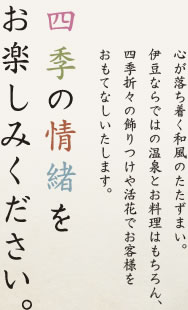 四季の情緒を
お楽しみください。
心が落ち着く和風のたたずまい。
伊豆ならではの温泉とお料理はもちろん、
四季折々の飾りつけや活花でお客様を
おもてなしいたします。